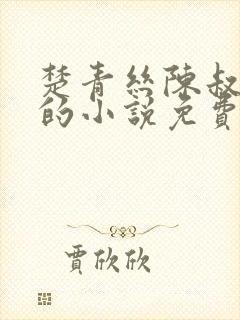 楚青絲陳叔
的小說免費
賈欣欣